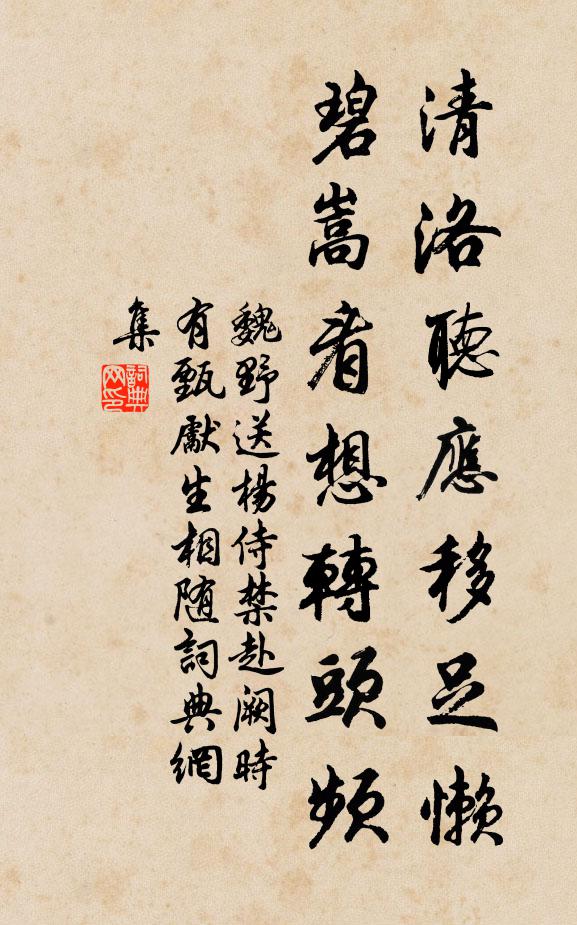 清洛聽應移足懶
碧嵩看想轉頭頻
魏野送楊侍禁赴闕時
有甄獻生相随詞典網
集
詞典
网印